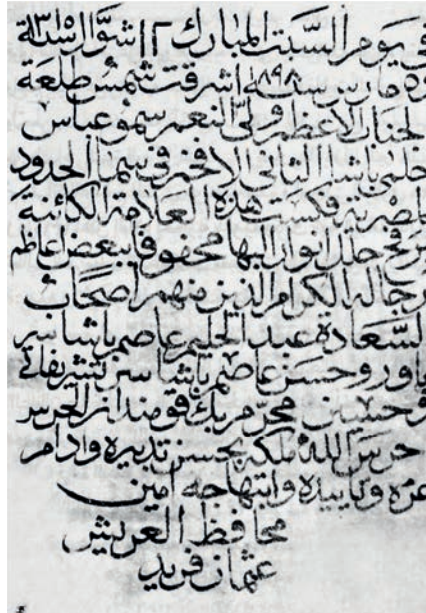 في يوم السبت المبارك ١٢ شوال سنة ١٣١٥
٥ مارس سنة ١٨٩٨ اشرقت شمس طلعة
الجناب الاعظم ولي النعم سمو عباس
حلمي باشا الثاني الافخم في سما الحدود
المصرية فكست هذه العلامة الكائنة
برفح حلل انوار البها محفوفا ببعض اعاظم
رجاله الكرام الذين منهم اصحاب
السعادة عبد الحليم عاصم باشا سر
ياور وحسن عاصم باشا سر تشريفاتي
وحسين محرم بك قومندان الحرس
حرس الله ملكه بحسن تدبيره وادام
عزه وتاييده وابتهاجه امين
محافظ العريش
عثمان فريد